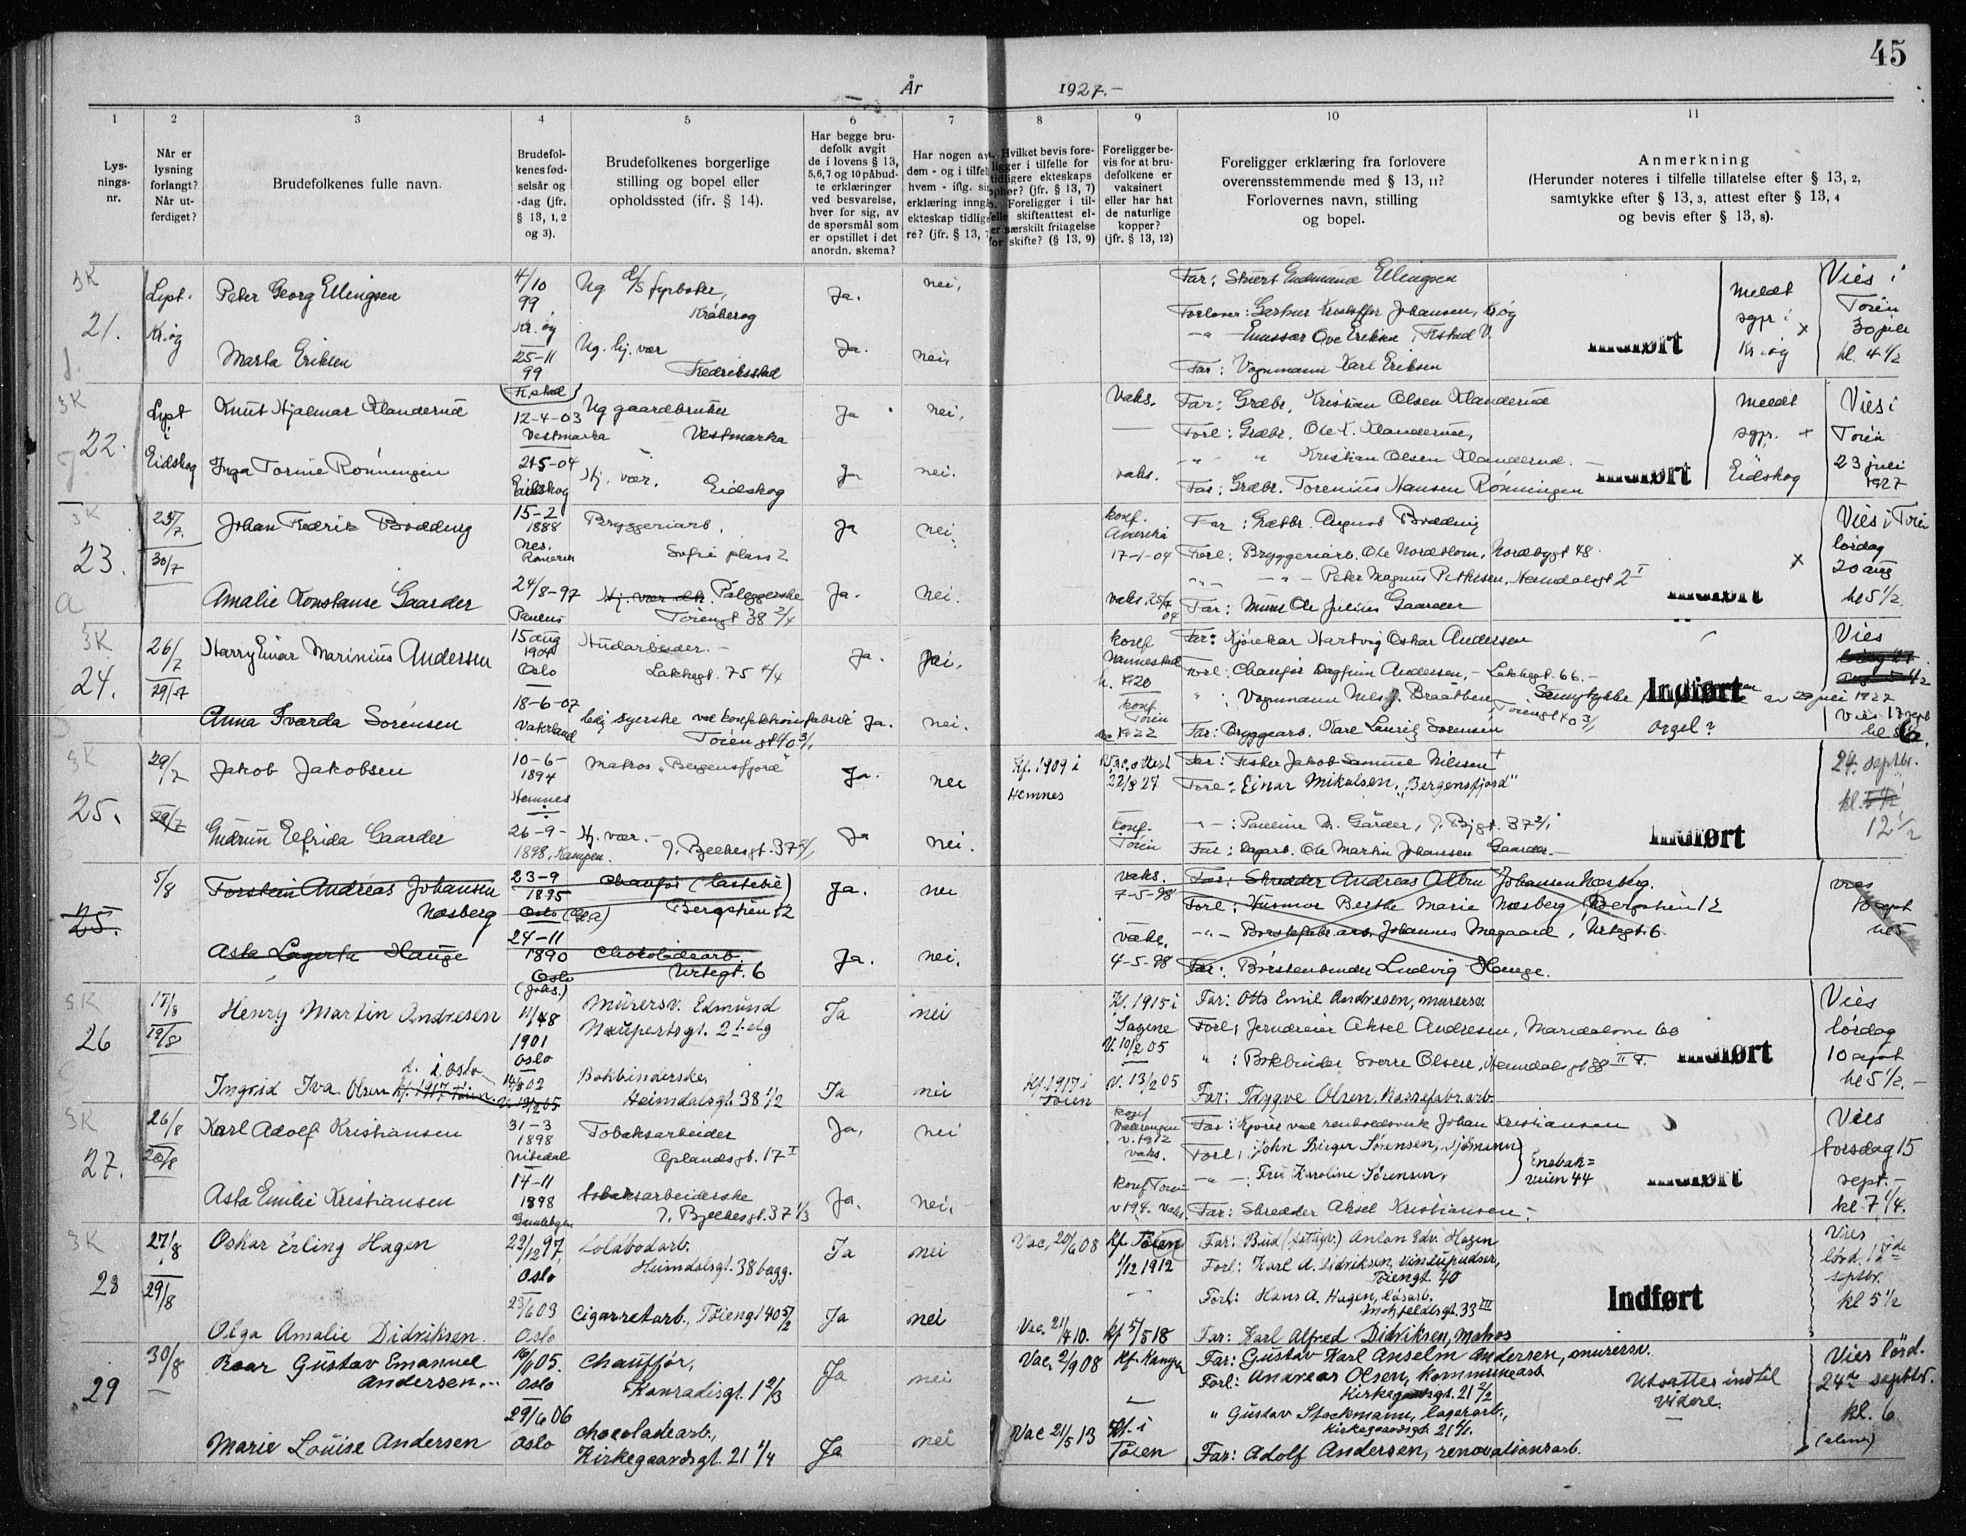 45
År 1927.-
1 2 3 4 5 6 7 8 9 10 11
Lys-
nings-
nr.
Når er
lysning
forlangt?
Når ut-
ferdiget?
Brudefolkenes fulle navn.
Brudefol-
kenes fød-
selsår og
-dag (jfr.
§ 13, 1, 2
og 3).
Brudefolkenes borgerlige
stilling og bopel eller
opholdssted (jfr. § 14).
Har begge bru-
defolk avgit
de i lovens § 13,
5,6,7 og 10 påbud-
te erklæringer
ved besvarelse,
hver for sig, av
de spørsmål som
er opstillet i det
anordn. skema?
Har nogen av
dem - og i tilfel
hvem - iflg. si
erklæring inng
ekteskap tidlig
re? (jfr. § 13,
Hvilket bevis fore-
ligger i tilfelle for
tidligere ekteskaps
ophør? (jfr. § 13, 7)
Foreligger i til-
felle skifteattest el-
er særskilt fritagelse
for skifte? (§ 13, 9)
Foreligger be-
vis for at bru-
defolkene er
vaksinert
eller har hat
de naturlige
kopper?
(jfr. § 13, 12)
Foreligger erklæring fra forlovere
overensstemmende med § 13, 11?
Forlovernes navn, stilling
og bopel.
Anmerkning
(Herunder noteres i tilfelle tillatelse efter § 13, 2,
samtykke efter § 13, 3, attest efter § 13, 4
og bevis efter § 13, 8).
3K
21.
Lyst.
Kr.øg
Peter Georg Ellingsen
4/10
99
Kr. øg
Ug fyrbøter,
Kråkerøg
Ja.
nei,
Far: Ellingsen
Forlover: Kristoffer Johansen, Kr.øg
Marta Eriksen
25-11
99
F.stad
Ug. hj. vær
Fredriksstad
Ja.
nei,
Ove Eriksen, F.stad V.
Far: Vognmann Karl Eriksen
Indført
Meldt
sgpr i
Kr.øg
x
Vies i
Tøien
30 juli
kl. 4 1/2
3K
22.
Lyst
i
Eidskog
Knut Hjalmar Klanderud
12-4-03
Vestmarka
Ug gaardbruker
Vestmarka
Ja
nei,
Vaks.
Far: Grdbr. Kristian Olsen Klanderud
Forl: Grdbr. Ole K. Klanderud,
Inga Torine Rønningen
21-5-04
Eidskog
Hj. vær.
Eidskog
Ja
nei.
vaks.
-"- " Kristian Olsen Klanderud.
Far: Grdbr. Torenius Hansen Rønningen
Indført
Meldt
sgpr.
Eidskog
Vies i
Tøien
23 juli
1927
3K
23.
25/7
30/7
Johan Fredrik Bodding
15-2
1888
Nes.
Romerik
Bryggeriarb.
Sofie plass 2
Ja
nei
konf.
Amerika
17-1-04
Far: Gårdbr. Bodding
Forl: Bryggeriarb. Ole Nordblom, Nordbygt 48.
Amalie Konstanse Gaarder
24/8-97
Hj. vær Pålæggerske
Tøiengt 38 2/4
Ja.
nei.
vaks. 25/7
04
-"- -"- Peter Magnus Pettersen, Heimdalsgt 2 I
Far: Murer Ole Julius Gaarder
Indført
x
Vies i Tøien
lørdag
20 aug
kl 5 1/2.
3K
24.
26/7
29/7
Harry Einar Marinius Andersen
15 aug
1904
Oslo
Hudarbeider.
Lakkegt. 75 4/4
Ja.
nei,
konf
Nannestad
h. 1920
Far: Kjørekar Hartvig Oskar Andersen
Forl: Chaufør Dagfinn Andersen, - Lakkegt. 66. -
Anna Svarda Sørensen
18-6-07
Vaterland
syerske ved konfektionsfabrik
Tøiengt 40 3/1
Ja.
nei.
konf.
Tøien
1922
" : Vognmann Nils J. Braathen, Tøiengt 40 3/1
Far: Bryggearb. Kare Laurits Sørensen
Indført
Samtykke av 29 juli 1927
orgel?
Vies
Vies 17 sept
kl 6
3K
25.
29/7
29/7
Jakob Jakobsen
10-6-
1894
Hemnes
Matros "Bergensfjord"
Ja.
nei
Kf. 1909 i
Hemnes
Vac.attest
22/8 27
Far: Fisker Jakob Samuel Nilssen +
Forl: Einar Mikalsen, "Bergensfjord"
Gudrun Elfrida Gaarder
26-9-
1898, Kampen.
Hj. vær. -
J. Bjelkesgt. 37
Ja
nei.
konf.
Tøien
-"-: Pauline M. Gårder, J. Bjgt. 37 2/1
Far: Dagarb. Ole Martin Johansen Gaarder. -
Indført
24. septbr.
kl. 5 1/2
12 1/2
25.
5/8
Torstein Andreas Johansen
Næsberg
23-9
1895
Oslo
Chaufør (lastebil)
Bergstien 12
Ja.
nei
vaks.
7-5-98
Far: Skredder Andreas Albin Johansen Næsberg.
Forl: Husmor Berthe Marie Næsberg, Bergstien 12
Asta Lagerta Hauge
24-11
1890
Oslo
(Joks.)
Chokoladearb.
Urtegt. 6
Ja.
nei.
vaks.
4-5-98
-"- Børstefabr. arb. Johannes Megaard, Urtegt. 6.
Far: Børstenbinder Ludvig Hauge.
3K
26
17/8
19/8
Henry Martin Andresen
1901
Oslo
Murersv. Edmund
Neupertsgt. 2 I. etg
Ja
nei
Kf. 1915 i
Sagene
V. 10/2 05
Far: Otto Emil Andresen, murersv.
Forl: Jerndreier Aksel Andresen, Maridalsvn 60
Ingrid Iva Olsen
d. i. Oslo
Kf. 1917 Tøien
14/8 02
V. 13/2 05
Bokbinderske,
Heimdalsgt. 38 1/2
Ja
nei
Kf. 1917 i
Tøien
V. 13/2 05
" : Bokbinder Sverre Olsen, Heimdalsgt 38 II
Far: Trygve Olsen, Kassefabr.arb.
Indført
Vies
lørdag
10 sept
kl 5 1/2. -
3K
27.
26/8
26/8
Karl Adolf Kristiansen
31-3
1898
Nitedal
Tobaksarbeider
Oplandsgt. 17 I
Ja,
nei
konf
Vålerengen
v. 1912
vaks.
Far: Kjører ved renholdsverk Johan Kristiansen
Forl: John Birger Sørensen, Sjømann
Asta Emilie Kristiansen
14-11
1898
Gamlebyen
tobaksarbeiderske
J. Bjelkesgt. 37 1/3
Ja.
nei. -
konf Tøien
v 194. vaks.
-"- -. Fru Karoline Sørensen,
Enebak=
veien 44
Far: Skredder Aksel Kristiansen. -
Indført
Vies
torsdag 15
sept. -
kl 7 1/4.
3K
28
27/8
29/8
Oskar Erling Hagen
22/12 97
Oslo
Colabodarb.
Heimdalsgt. 38 bagg.
Ja
nei
Vac. 20/6 08
Kf. Tøien
1/12 1912
Far: Bud Anton Edv. Hagen
Forl: Karl A. Didriksen, Vinduspudser,
Tøiengt. 40
Olga Amalie Didriksen.
23/6 03
Oslo
Cigarretarb., Tøiengt 40 5/2
Ja
nei
Vac. 21/4 10.
Kf 5/5 18
Forl: Hans A. Hagen, løsarb.
Motzfeldtsgt. 33 III
Far: Karl Alfred Didriksen, Matros
Indført
Vies
lørd. 17de
septbr.
kl 5 1/2
29
30/8
Roar Gustav Emanuel
Andersen
16/1 05.
Oslo
Chauffør,
Konradisgt. 1 2/3
Ja
nei
Vac. 2/9 08
Kf. Kampen
Far: Gustav Karl Anselm Andersen, murersv.
Forl: Andreas Olsen, kommunearb
Kirkegaardsgt. 21 2/2
Marie Louise Andersen
29/6 06
Oslo
chocoladearb.,
Kirkegaardsgt. 21 1/4
Ja
nei
Vac 21/5 13
Kf. i
Tøien
" Gustav Stockmann, lagerarb.,
Kirkegaardsgt. 21
Far: Adolf Andersen, renovationsarb.
Utsættes indtil
videre.
Vies lörd.
24de septbr.
kl. 6
(alene)